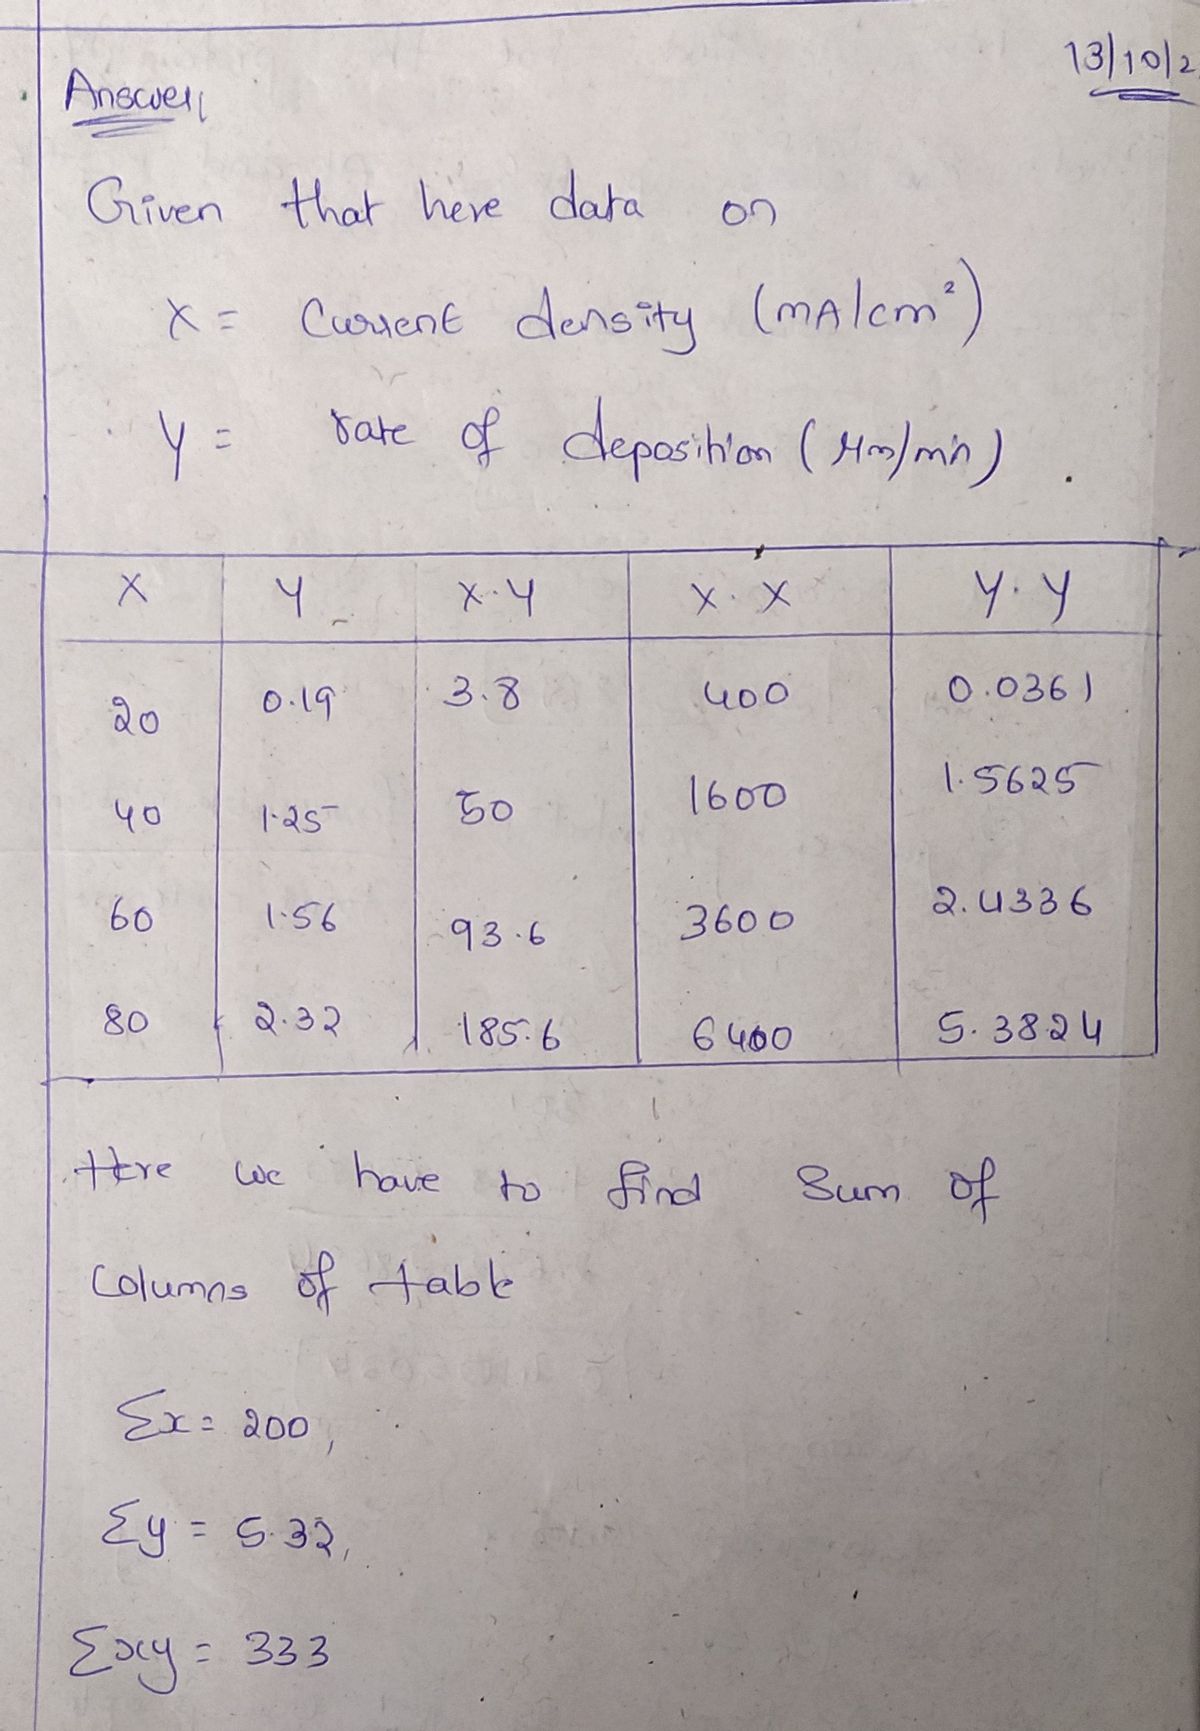 13/10/2
Answer
Given that here data on
X = Current density (mA/cm²)
Y = rate of deposition (μm/min)
X Y X·Y X·X Y·Y
20 0.19 3.8 400 0.0361
40 1.25 50 1600 1.5625
60 1.56 93.6 3600 2.4336
80 2.32 185.6 6400 5.3824
Here we have to find Sum of
Columns of table
Σx = 200,
Σy = 5.32,
Σxy = 333